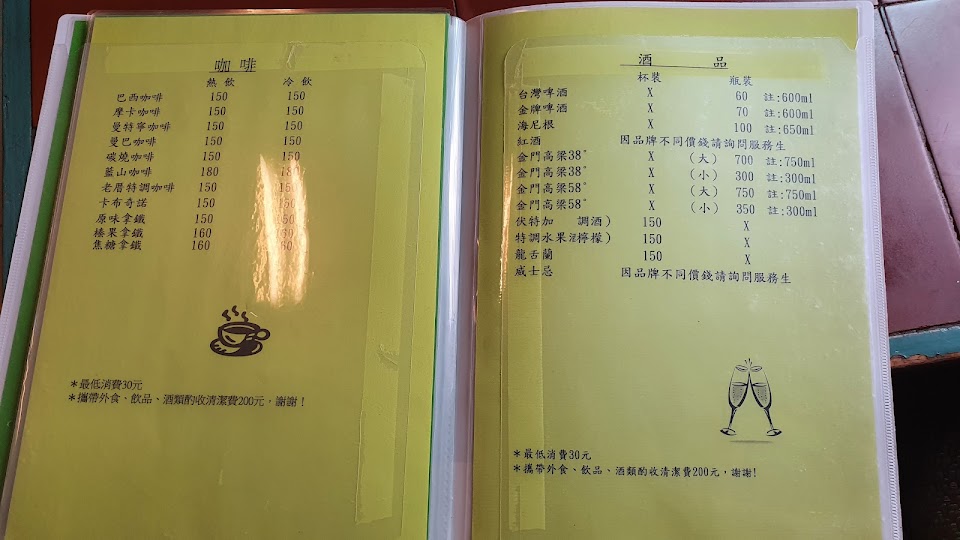 咖啡
熱飲 冷飲
巴西咖啡 150 150
摩卡咖啡 150 150
曼特寧咖啡 150 150
曼巴咖啡 150 150
碳燒咖啡 150 150
藍山咖啡 180 180
老厝特調咖啡 150 150
卡布奇諾 150 150
原味拿鐵 150
榛果拿鐵 160
焦糖拿鐵 160
＊最低消費30元
＊攜帶外食、飲品、酒類酌收清潔費200元，謝謝！
酒品
杯裝 瓶裝
台灣啤酒 X 60 註:600ml
金牌啤酒 X 70 註:600ml
海尼根 X 100 註:650ml
紅酒 因品牌不同價錢請詢問服務生
金門高梁38° X (大) 700 註:750ml
金門高梁38° X (小) 300 註:300ml
金門高梁58° X (大) 750 註:750ml
金門高梁58° X (小) 350 註:300ml
伏特加 調酒) 150 X
特調水果 檸檬) 150 X
龍舌蘭 150 X
威士忌 因品牌不同價錢請詢問服務生
＊最低消費30元
＊攜帶外食、飲品、酒類酌收清潔費200元，謝謝!